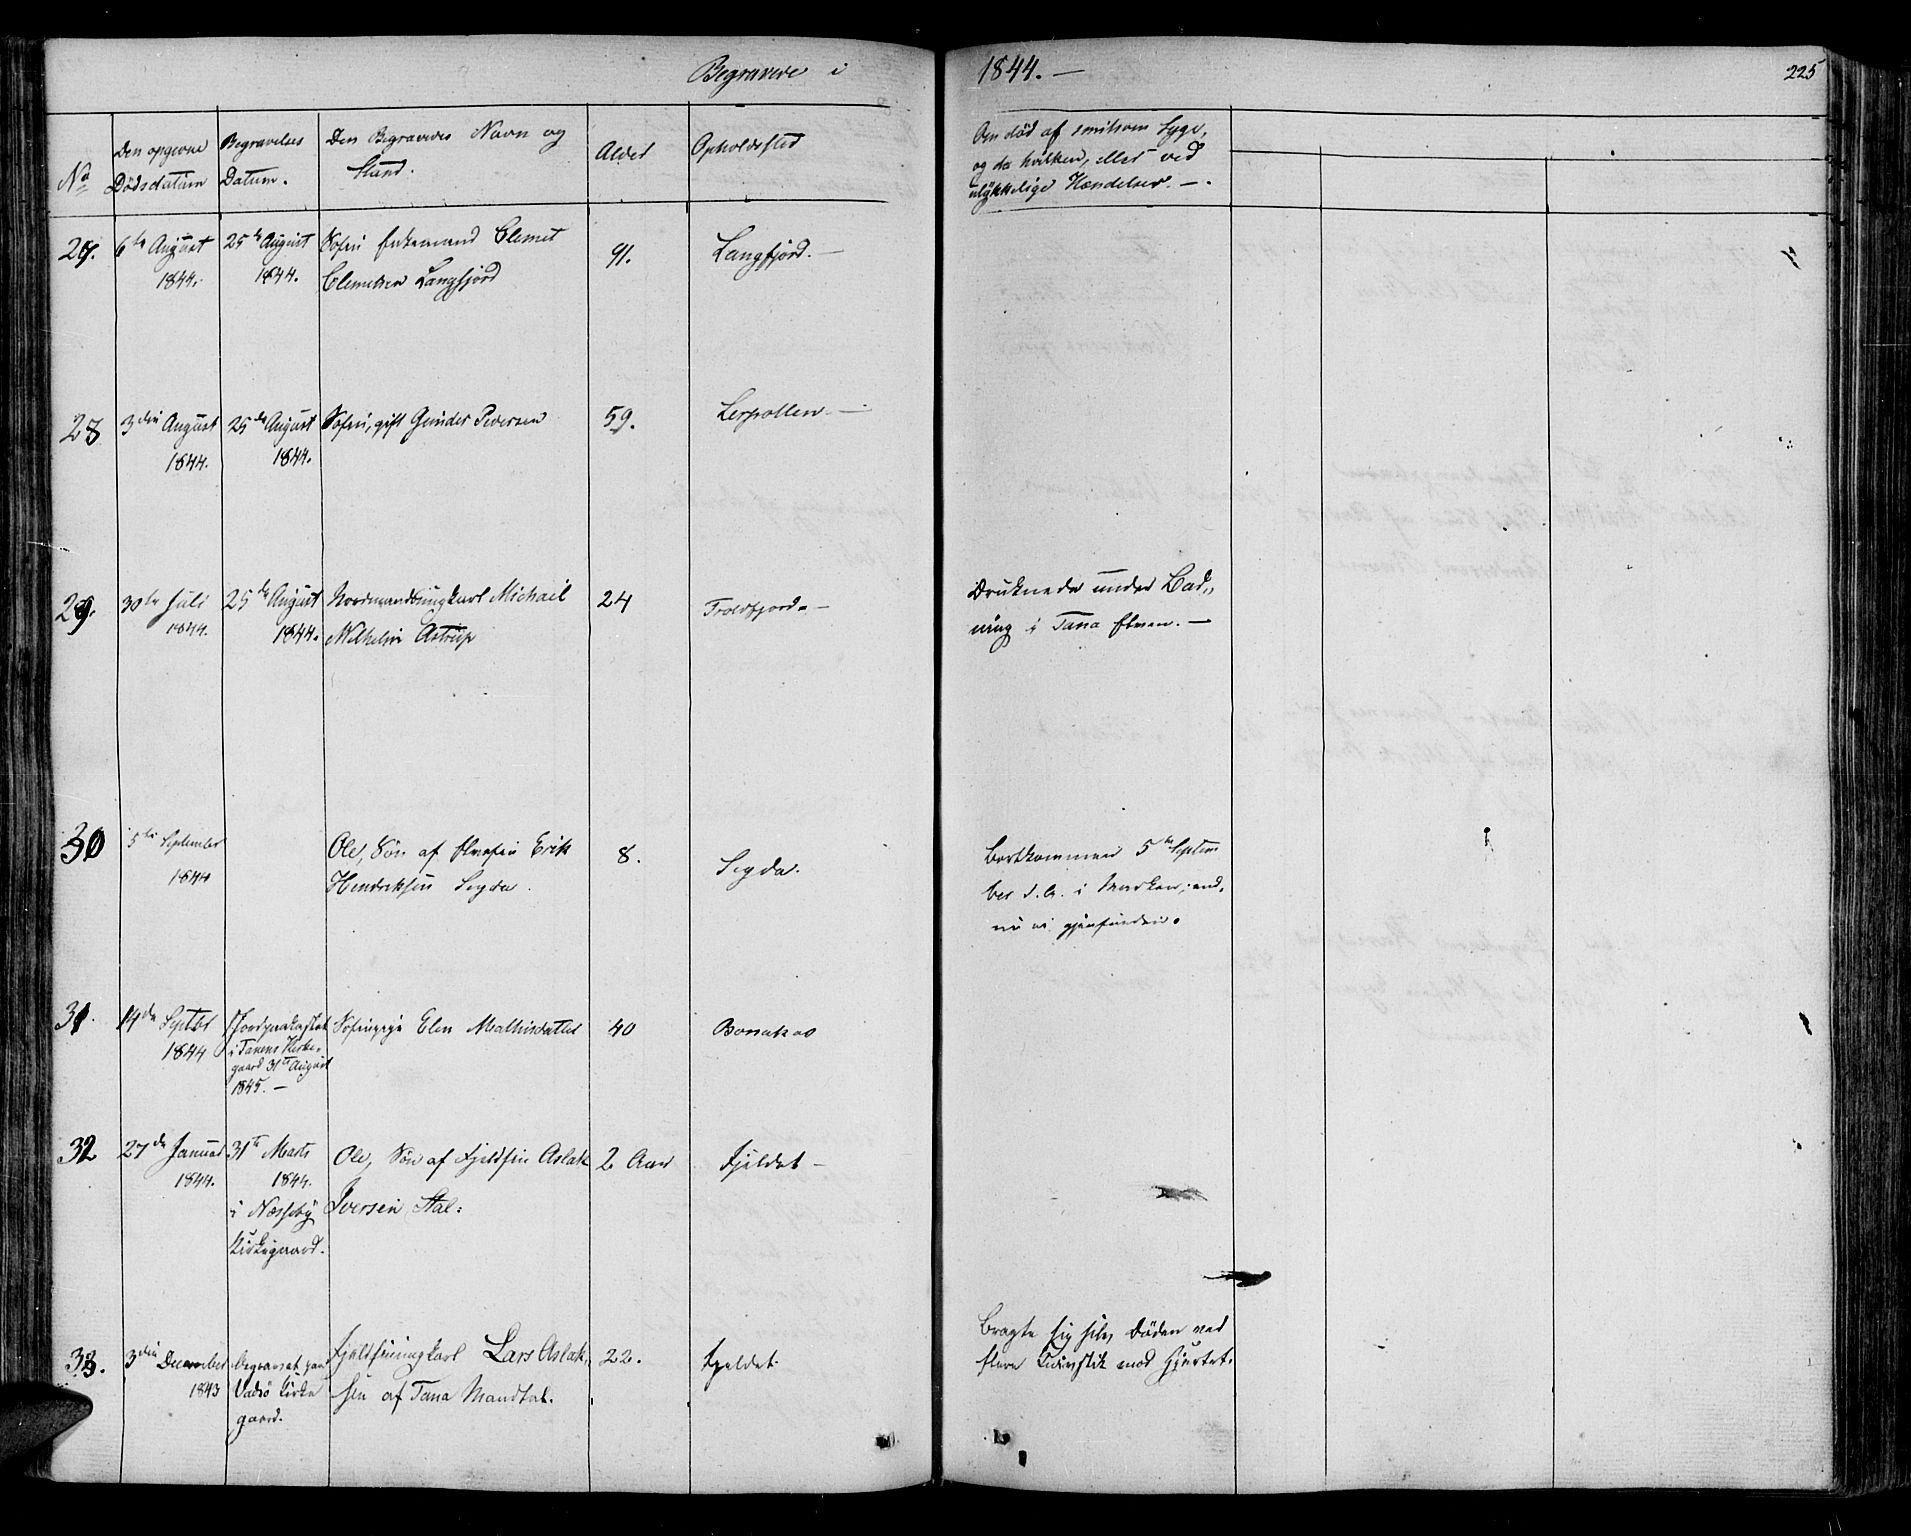 Begravede i 1844. —
225
No
Den opgivne
Dödsdatum
Begravelses
Datum.
Den Begravedes Navn og
Stand.
Alder
Opholdssted
Om död af smitsom Syge,
og da hvilken, eller ved
ulykkelige Hændelser. —
27. 6te August
1844.
25de August
1844.
Søfin Enkemand Clemet
Clemetsen Langfjord
91.
Langfjord. —
28 3die August
1844.
25de August
1844.
Søfin, gift Gunder Pedersen
59.
Lerpollen. —
29. 30te Juli
1844.
25de August
1844.
Nordmandsungkarl Michael
Wilhelm Astrup
24
Troldfjord. —
Druknede under Bad-
ning i Tana Elven. —
30 5te September
1844
Ole, Sön af Elvefin Erik
Hendriksen Segda.
8.
Segda.
Bortkommen 5te Septem
ber d. A. i Marken; end-
nu ei gjenfunden.
31. 14de Septbr
1844
Jordpaakastet
i Tanens Kirke-
gaard 31te August
1845. —
Søfinpige Elen Mathisdatter
40
Bonakas
32 27de Januar
1844.
31te Marts
1844.
i Næsseby
Kirkegaard.
Ole, Sön af Fjeldfin Aslak
Iversen Stal:
2 Aar
Fjeldet —
33. 3die December
1843
Begravet paa
Vadsö Kirke
gaard.
Fjeldfinungkarl Lars Aslak-
sen af Tana Mandtal.
22.
Fjeldet.
Bragte sig selv Döden ved
flere Knivstik mod Hjertet.